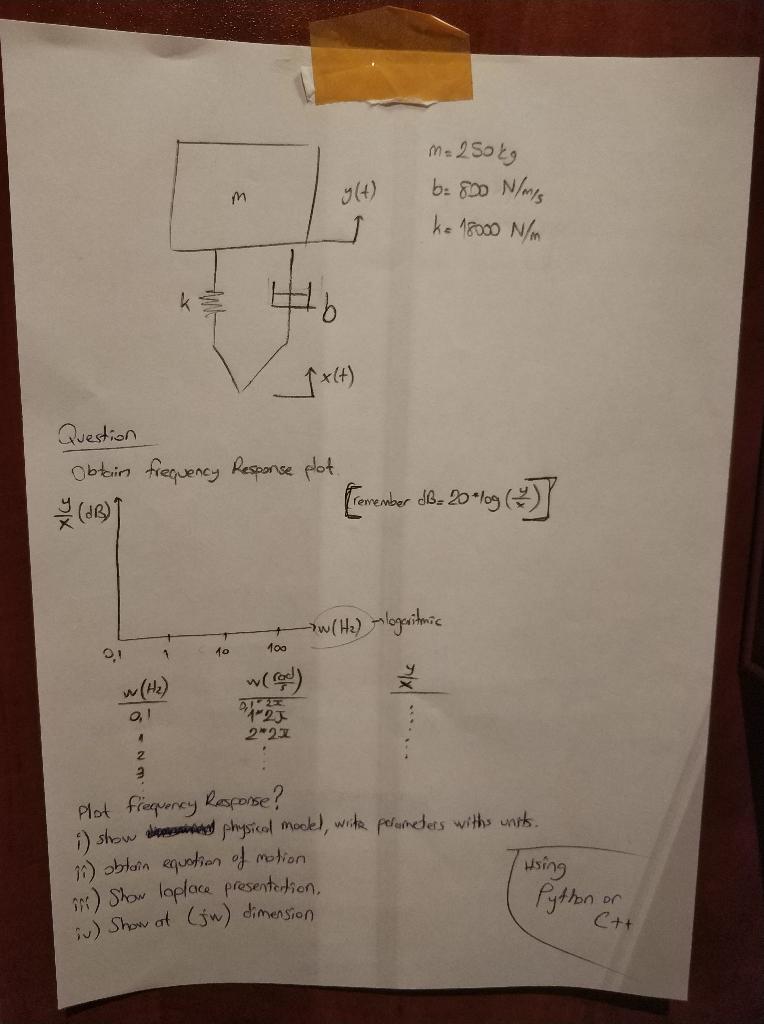 m
y(t)
m = 250 kg
b = 800 N/m/s
k = 18000 N/m
k
b
x(t)
Question
Obtain frequency Response plot.
y/x (dB)
[remember dB = 20*log (y/x)]
w(Hz) → logaritmic
0,1 1 10 100
w(Hz) w(rad/s) y/x
0,1 0,1*2π
1 1*2π
2 2*2π
3
Plot frequency Response?
i) show physical model, write parameters withs units.
ii) obtain equation of motion
iii) Show laplace presentertion.
iv) Show at (jw) dimension
Using
Python or
C++